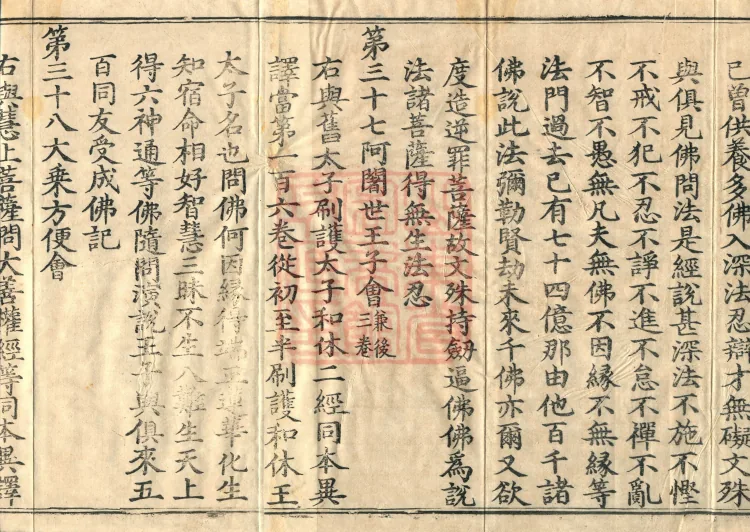 已曾供養多佛入深法忍辯才無礙文殊
與俱見佛問法是經說甚深法不施不慳
不戒不犯不忍不諍不進不怠不禪不亂
不智不愚無凡夫無佛不因緣不無緣等
法門過去已有七十四億那由他百千諸
佛說此法彌勒賢劫未來千佛亦爾又欲
度造逆罪菩薩故文殊持劒逼佛佛爲說
法諸菩薩得無生法忍
第三十七阿闍世王子會兼後三卷
右與舊太子刷護太子和休二經同本異
譯當第一百六卷從初至半刷護和休王
太子名也問佛何因緣得端正蓮華化生
知宿命相好智慧三昧不生八難生天上
得六神通等佛隨問演說王子與俱來五
百同友受成佛記
第三十八大乗方便會
右與慧上菩薩問大善權經等同本異譯